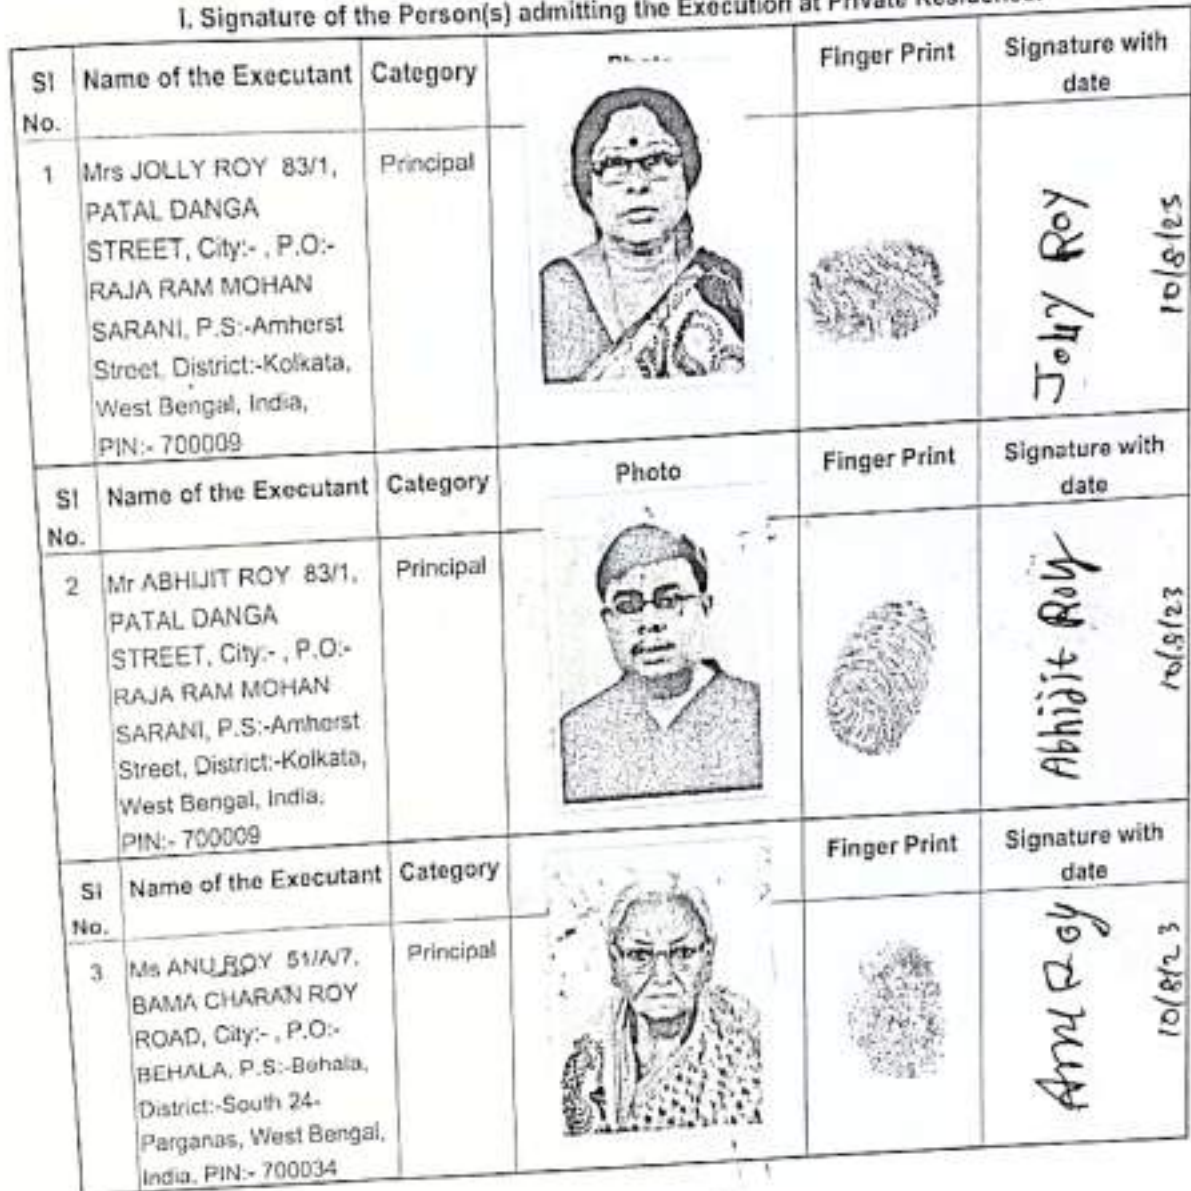 I. Signature of the Person(s) admitting the Execution at Private Residence.
Sl No. Name of the Executant Category Photo Finger Print Signature with date
1 Mrs JOLLY ROY 83/1, Principal
PATAL DANGA
STREET, City:- , P.O:-
RAJA RAM MOHAN
SARANI, P.S:-Amherst
Street, District:-Kolkata,
West Bengal, India,
PIN:- 700009
Jolly Roy
10/8/23
Sl No. Name of the Executant Category Photo Finger Print Signature with date
2 Mr ABHIJIT ROY 83/1, Principal
PATAL DANGA
STREET, City:- , P.O:-
RAJA RAM MOHAN
SARANI, P.S:-Amherst
Street, District:-Kolkata,
West Bengal, India,
PIN:- 700009
Abhijit Roy
10/8/23
Sl No. Name of the Executant Category Finger Print Signature with date
3 Ms ANU ROY 51/A/7, Principal
BAMA CHARAN ROY
ROAD, City:- , P.O:-
BEHALA, P.S:-Behala,
District:-South 24-
Parganas, West Bengal,
India, PIN:- 700034
Anu Roy
10/8/23